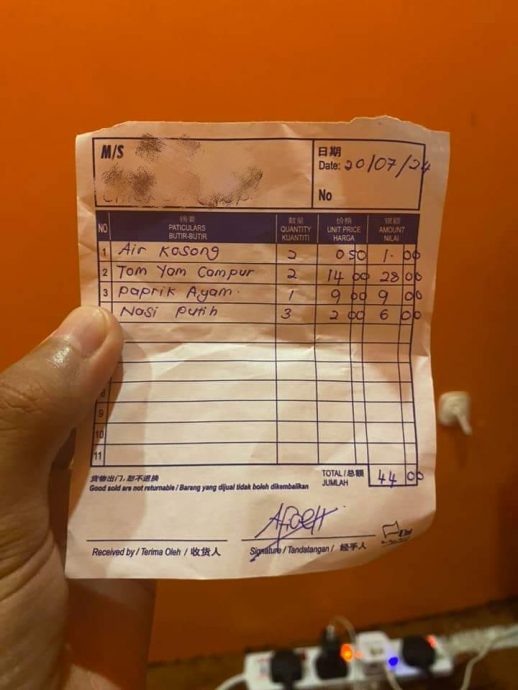 M/S
日期
Date: 20/07/24
No
NO 摘要 PATICULARS BUTIR-BUTIR 数量 QUANTITY KUANTITI 价格 UNIT PRICE HARGA 银额 AMOUNT NILAI
1 Air Kosong 2 0 50 1. 00
2 Tom Yam Campur 2 14 00 28 00
3 Paprik Ayam. 1 9 00 9 00
Nasi Putih 3 2 00 6 00
8
9
10
11
货物出门，恕不退换
Good sold are not returnable / Barang yang dijual tidak boleh dikembalikan
TOTAL / 总额
JUMLAH
44 00
Received by / Terima Oleh / 收货人
Signature / Tandatangan / 经手人